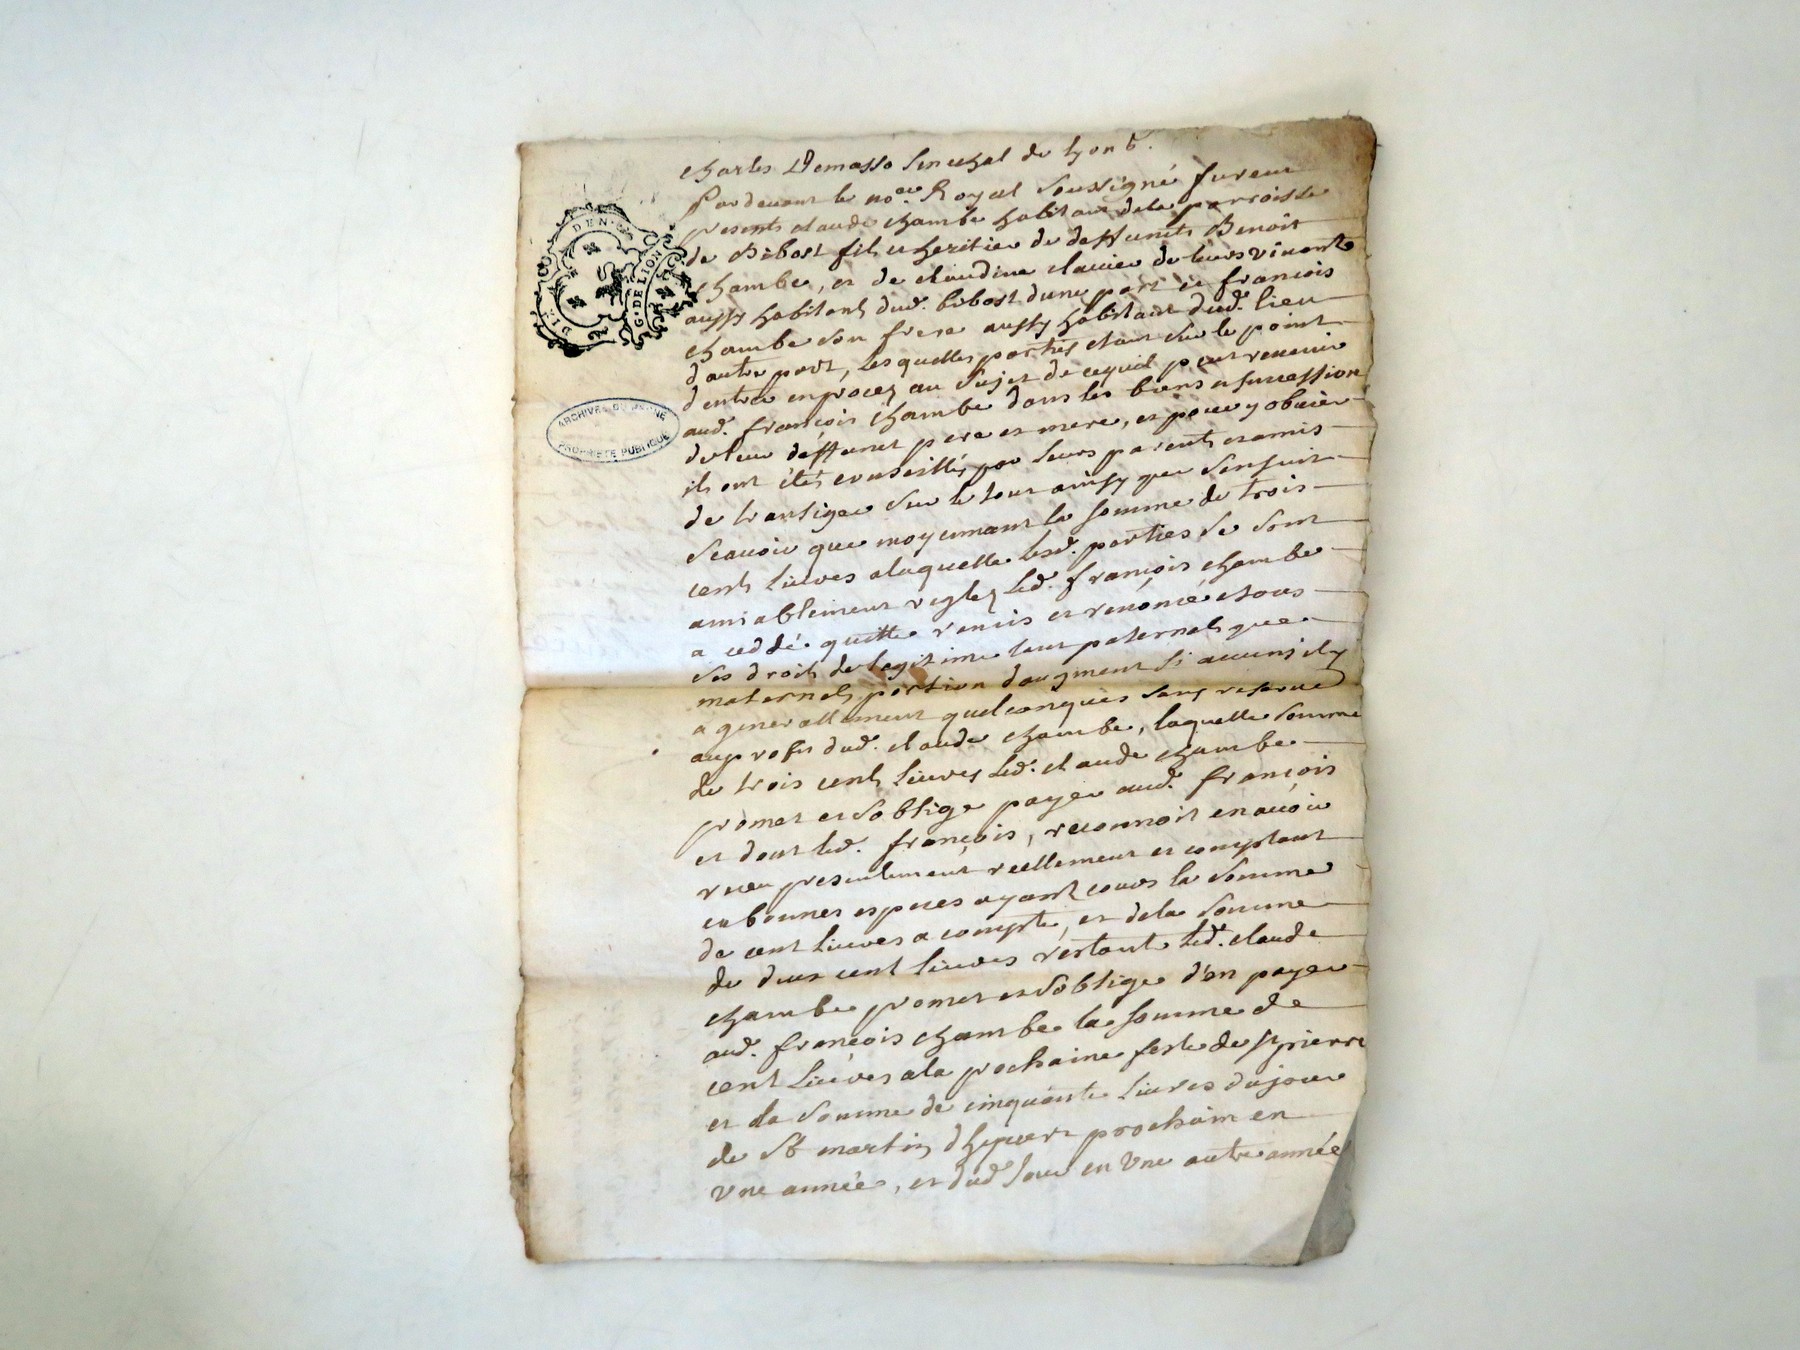 DIX DEN.
G. DE LION
ARCHIVES DU RHONE
PROPRIETE PUBLIQUE
Charles Demasso senechal de Lyon &.
Pardevant le no.re Royal soussigné furent
presents claude chambe habitant dela parroisse
de Bibost fils et heritier de deffunts Benoist
chambe, et de claudine clavier de leurs vivants
aussy habitants dud. bibost d'une part et francois
chambe son frere aussy habitant dud. lieu
d'autre part, lesquelles parties etant sur le point
d'entrer en procez au sujet de cequil peut revenir
aud. francois chambe dans les biens et succession
de leur deffunct pere et mere, et pour y obvier
ils ont étés conseillés par leurs parents et amis
de transiger sur le tout ainsy que sensuit
scavoir que moyennant la somme de trois
cents livres alaquelle lesd. parties se sont
amiablement reglez led. francois chambe
a ceddé quitte remis et renoncé atous
ses droits de legitime tant paternels que
maternels portion d'augment si aucuns ily
a generallement quelconques sans reserve
au profit dud. claude chambe, laquelle somme
de trois cents livres led. claude chambe
promet et soblige payer aud. francois
et dont led. françois, reconnoit en avoir
receu presentement reellement et comptant
en bonnes especes ayant cours la somme
de cent livres a compte, et dela somme
de deux cent livres restante led. claude
chambe promet et soblige d'en payer
aud. françois chambe la somme de
cent livres ala prochaine feste de St pierre
et la somme de cinquante livres dujour
de St martin d'hyvert prochain en
une année, et dud jour en une autre année